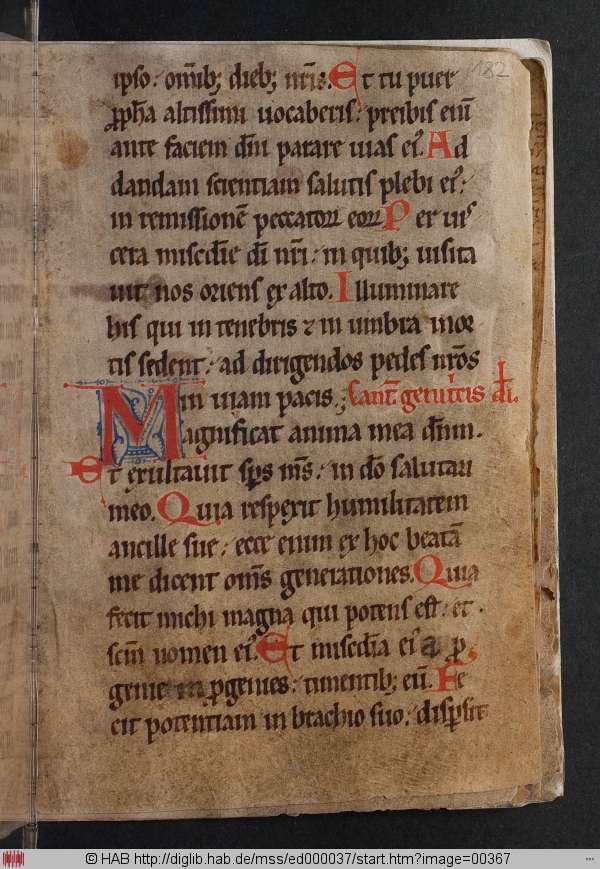 182
ipso: om̅ib; dieb; nr̅is. Et tu puer
ꝓph̅a altissimi uocaberis: preibis eni̅
ante faciem dn̅i parare uias ei᾿. Ad
dandam scientiam salutis plebi ei᾿:
in remissione̅ peccatoꝝ eoꝝ Per uis
cera mise̅d̅ie di̅ nr̅i: in quib; uisita
uit nos oriens ex alto. Illuminare
his qui in tenebris ⁊ in umbra mor
tis sedent: ad dirigendos pedes nr̅os
in uiam pacis.; Cant̅ genit̓cis di̅.
Magnificat anima mea dn̅m.
Et exultauit sps̅ ms̅: in do̅ salutari
meo. Quia respexit humilitatem
ancille sue: ecce enim ex hoc beata̅
me dicent om̅s generationes. Quia
fecit michi magna qui potens est: et
scm̅ nomen ei᾿. Et mise̅d̅ia ei᾿ a ꝓ
genie in ꝓgenies: timentib; eu̅. Fe
cit potentiam in brachio suo: disꝑsit
© HAB http://diglib.hab.de/mss/ed000037/start.htm?image=00367